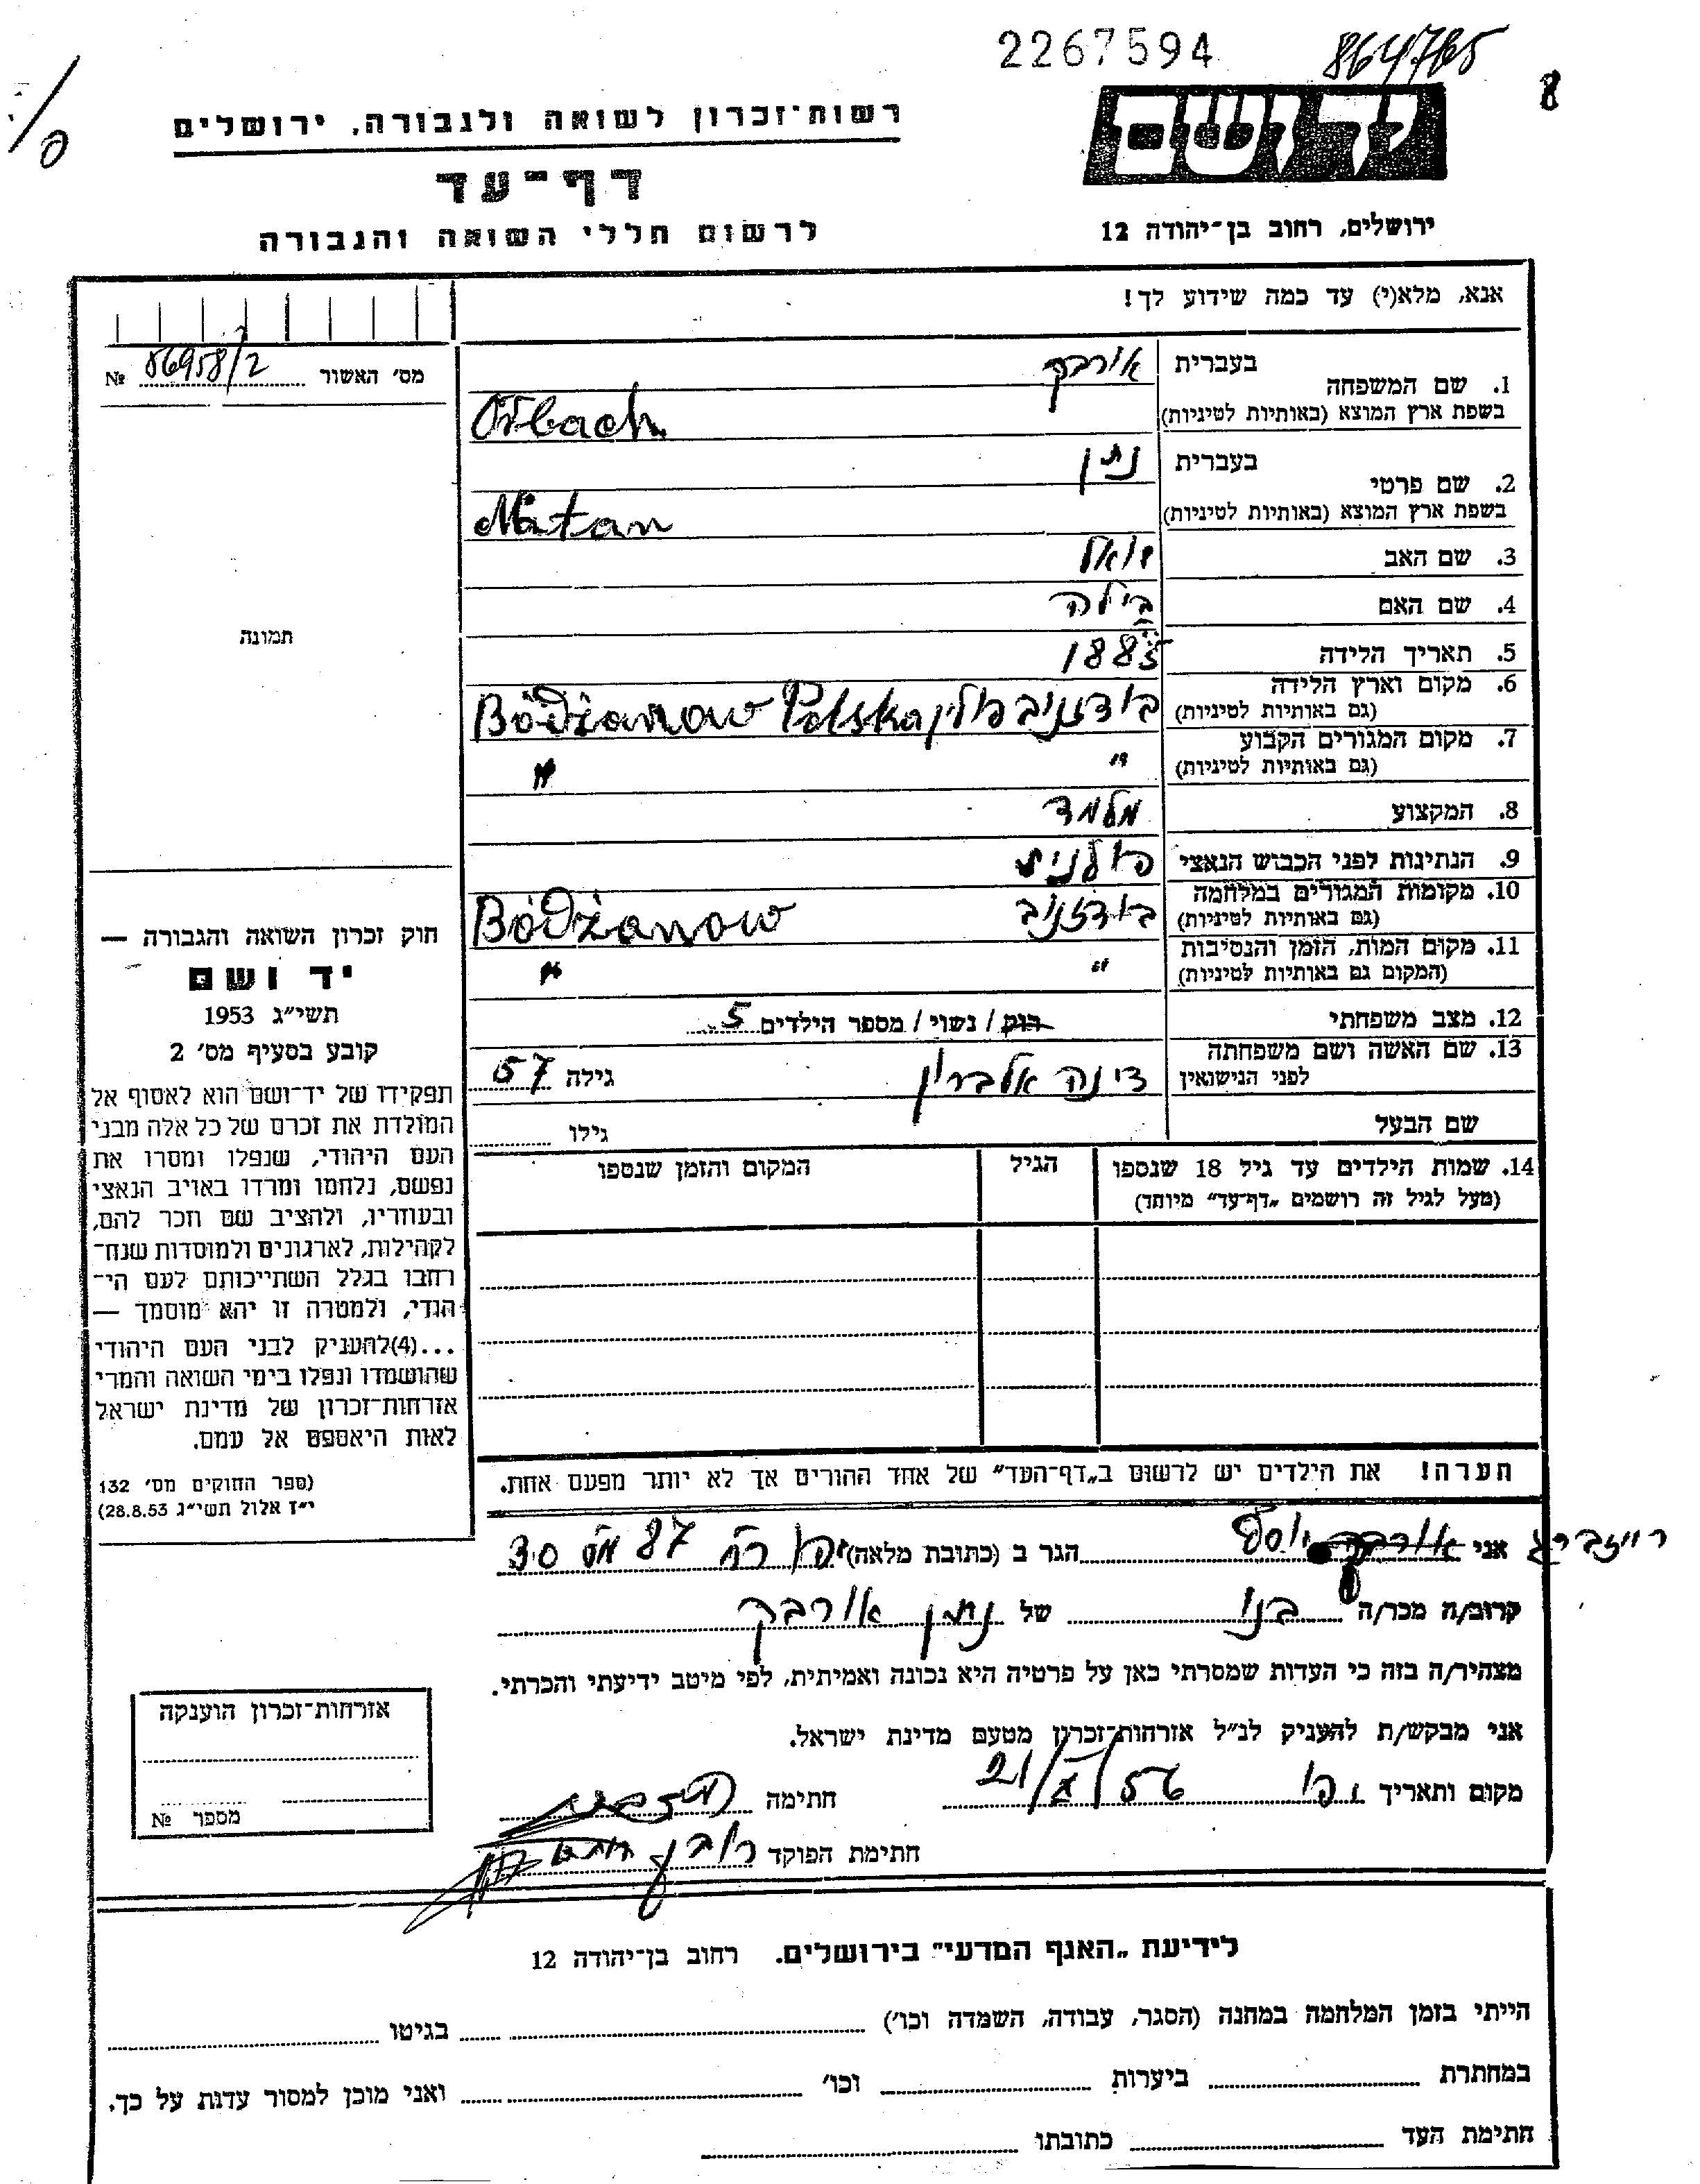 2267594 864765
8
רשות־זכרון לשואה ולגבורה, ירושלים
יד ושם
דף־עד
לרשום חללי השואה והגבורה
ירושלים, רחוב בן־יהודה 12
אנא, מלא(י) עד כמה שידוע לך!
מס׳ האשור № 56958/2
1. שם המשפחה בעברית אורבך
בשפת ארץ המוצא (באותיות לטיניות) Orbach
2. שם פרטי בעברית נתן
בשפת ארץ המוצא (באותיות לטיניות) Natan
3. שם האב יואל
4. שם האם בילה
5. תאריך הלידה 1885
6. מקום וארץ הלידה (גם באותיות לטיניות) בודזניב פולין Bódżanow Polska
7. מקום המגורים הקבוע (גם באותיות לטיניות) " "
8. המקצוע מלמד
9. הנתינות לפני הכבוש הנאצי פולנית
10. מקומות המגורים במלחמה (גם באותיות לטיניות) בודזניב Bódżanow
11. מקום המות, הזמן והנסיבות (המקום גם באותיות לטיניות) " "
12. מצב משפחתי רווק / נשוי / מספר הילדים 5
13. שם האשה ושם משפחתה לפני הנישואין דינה אלברין גילה 57
שם הבעל גילו
14. שמות הילדים עד גיל 18 שנספו הגיל המקום והזמן שנספו
(מעל לגיל זה רושמים „דף־עד" מיוחד)
הערה! את הילדים יש לרשום ב„דף־העד" של אחד ההורים אך לא יותר מפעם אחת.
תמונה
חוק זכרון השואה והגבורה —
יד ושם
תשי״ג 1953
קובע בסעיף מס׳ 2
תפקידו של יד־ושם הוא לאסוף אל
המולדת את זכרם של כל אלה מבני
העם היהודי, שנפלו ומסרו את
נפשם, נלחמו ומרדו באויב הנאצי
ובעוזריו, ולהציב שם וזכר להם,
לקהילות, לארגונים ולמוסדות שנח־
רחבו בגלל השתייכותם לעם הי־
הודי, ולמטרה זו יהא מוסמך —
...(4)להעניק לבני העם היהודי
שהושמדו ונפלו בימי השואה והמרי
אזרחות־זכרון של מדינת ישראל
לאות היאספם אל עמם.
(ספר החוקים מס׳ 132
י״ז אלול תשי״ג 28.8.53)
אני אורבך יוסף רייזברג הגר ב (כתובת מלאה) יפו רח 87 מס 30
קרוב/ה מכר/ה בנו של נתן אורבך
מצהיר/ה בזה כי העדות שמסרתי כאן על פרטיה היא נכונה ואמיתית, לפי מיטב ידיעתי והכרתי.
אני מבקש/ת להעניק לנ״ל אזרחות־זכרון מטעם מדינת ישראל.
מקום ותאריך יפו 21/X/56 חתימה
חתימת הפוקד ראובן
אזרחות־זכרון הוענקה
מספר №
לידיעת „האגף המדעי" בירושלים. רחוב בן־יהודה 12
הייתי בזמן המלחמה במחנה (הסגר, עבודה, השמדה וכו׳) בגיטו
במחתרת ביערות וכו׳ ואני מוכן למסור עדות על כך.
חתימת העד כתובתו